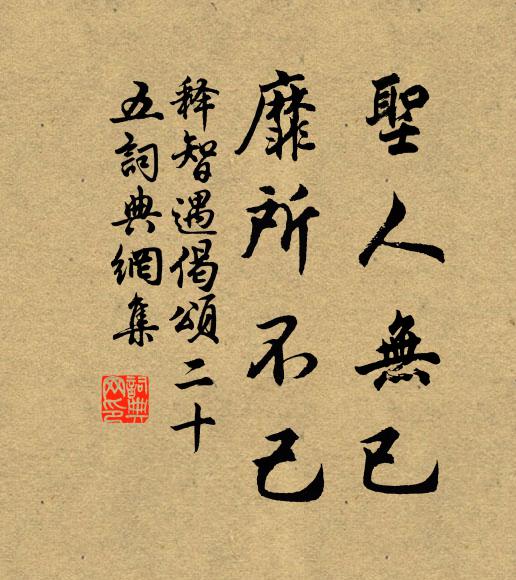 聖人無已
靡所不己
释智遇偈頌二十
五詞典網集
詞典
网印